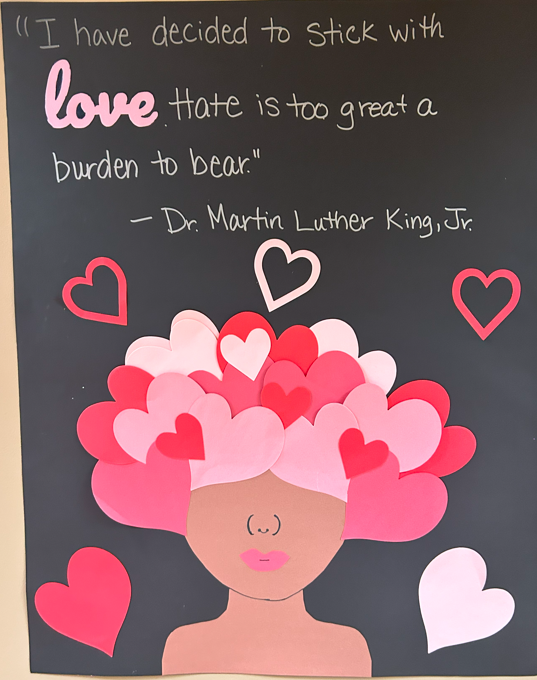 "I have decided to stick with
love. Hate is too great a
burden to bear."
- Dr. Martin Luther King, Jr.